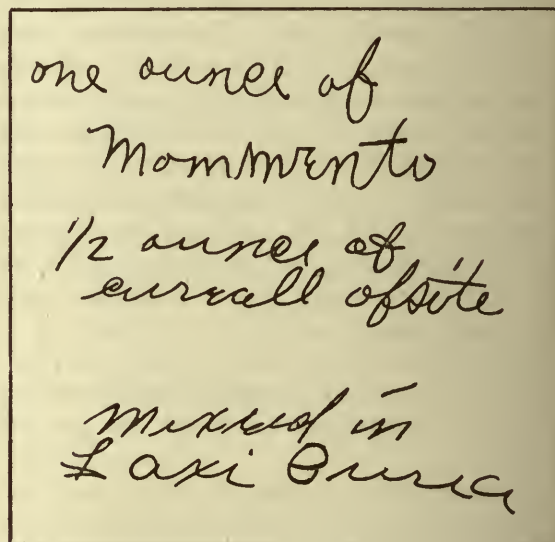 one ounce of
Mommento
1/2 ounce of
cureall ofsite
mixed in
Laxi Bur